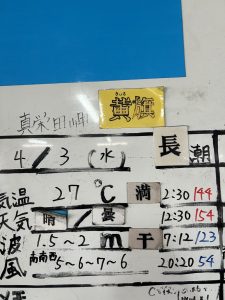 きいろ
黄旗
真栄田岬
4/3(水) 長潮
気温 27℃ 満 2:30 144
天気 晴/曇 12:30 154
波 1.5~2m 干 7:12 123
風 南南西 5~6~7~6 20:20 54